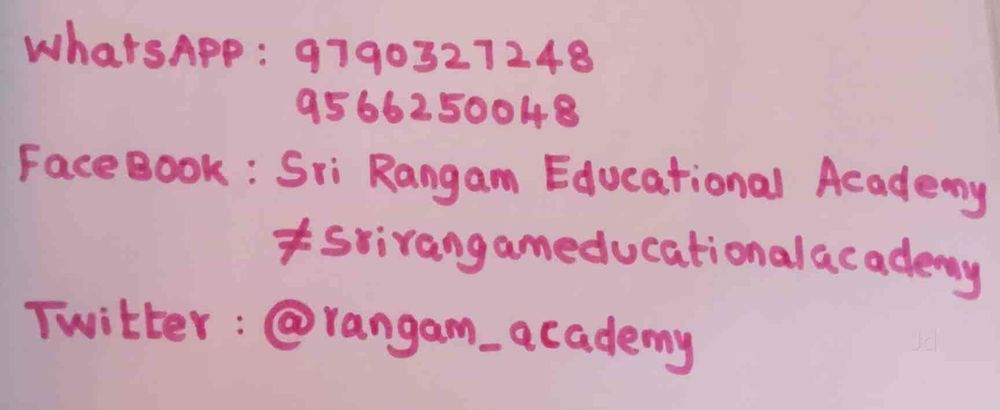 WhatsAPP : 9790327248
9566250048
FaceBook : Sri Rangam Educational Academy
≠srirangameducationalacademy
Twitter : @rangam_academy
Jd